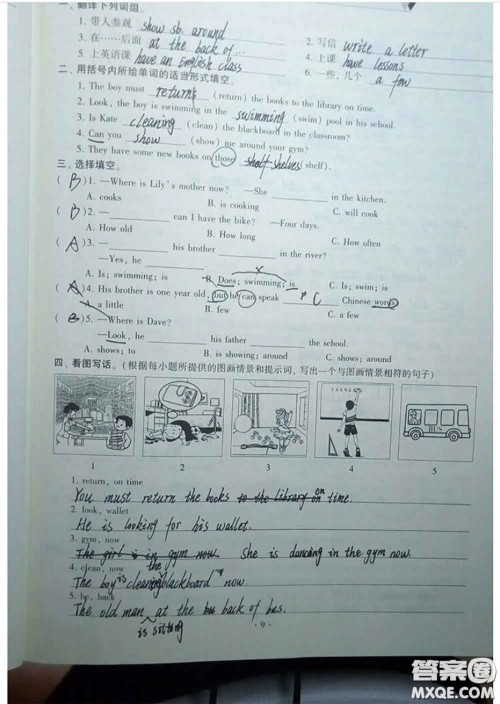 一、翻译下列词组。
1. 带人参观 show sb. around 2. 写信 write a letter
3. 在……后面 at the back of... 4. 上课 have lessons
5. 上英语课 have an English class 6. 一些，几个 a few
二、用括号内所给单词的适当形式填空。
1. The boy must returns (return) the books to the library on time.
2. Look, the boy is swimming in the swimming (swim) pool in his school.
3. Is Kate cleaning (clean) the blackboard in the classroom?
4. Can you show (show) me around your gym?
5. They have some new books on those shelf shelves (shelf).
三、选择填空。
( B )1. —Where is Lily's mother now? —She in the kitchen.
A. cooks B. is cooking C. will cook
( )2. — can I have the bike? —Four days.
A. How old B. How long C. How often
( A )3. — his brother in the river?
—Yes, he .
A. Is; swimming; is B. Does; swimming; is C. Is; swim; is
( A )4. His brother is one year old, but he can speak C Chinese words.
A. a little B. few C. a few
( )5. —Where is Dave?
—Look, he his father the school.
A. shows; to B. is showing; around C. shows; around
四、看图写话。(根据每小题所提供的图画情景和提示词，写出一个与图画情景相符的句子)
BUS
1 2 3 4 5
1. return, on time
You must return the books to the library on on time.
2. look, wallet
He is looking for his wallet.
3. gym, now
The girl is in gym now. She is dancing in the gym now.
4. clean, now
The boy is cleaning the blackboard now.
5. he, back
The old man is sitting at the bus back of bus.
· 9 ·
答案圈
MXQE.COM